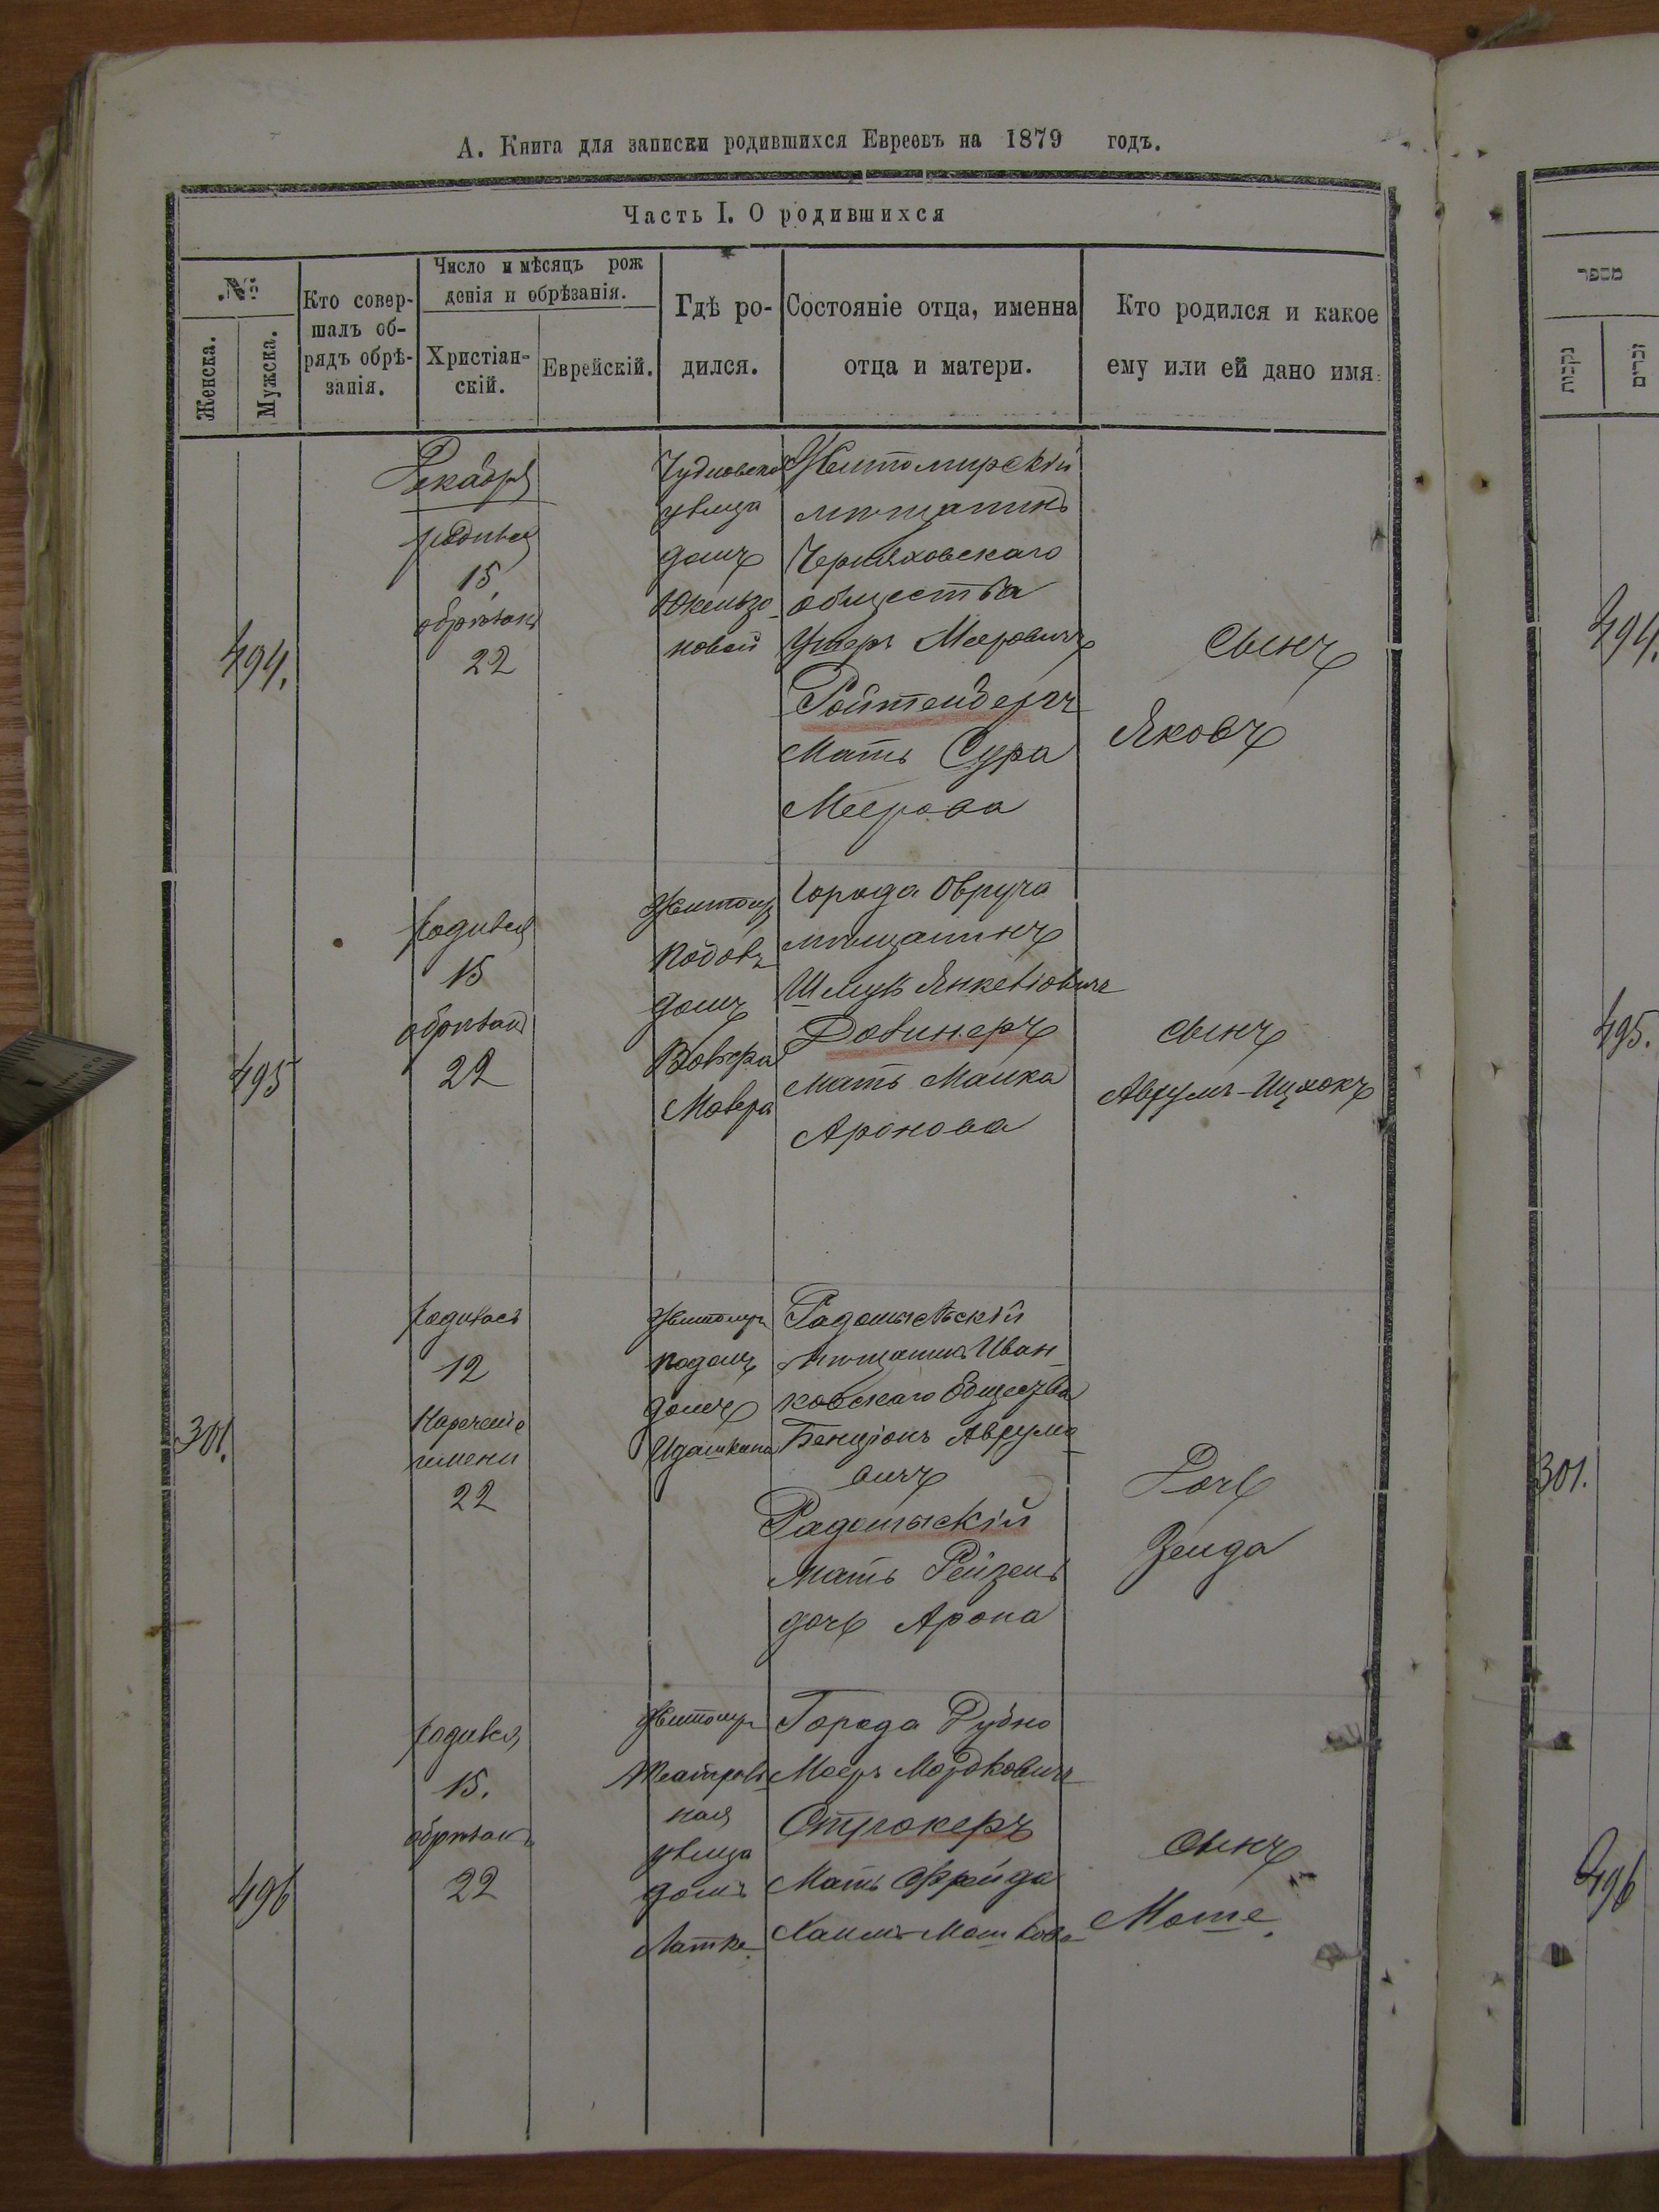 А. Книга для записки родившихся Евреевъ на 1879 годъ.
Часть I. О родившихся
№
Женска.
Мужска.
Кто совер-
шалъ об-
рядъ обрѣ-
занія.
Число и мѣсяцъ рож
денія и обрѣзанія.
Христіан-
скій.
Еврейскій.
Гдѣ ро-
дился.
Состояніе отца, именна
отца и матери.
Кто родился и какое
ему или ей дано имя.
494.
Декабря
родился
15
обрѣзанъ
22
Чудновская
улица
домъ
новой
Житомирскій
мѣщанинъ
Черняховскаго
общества
Мееровичъ
Ройтенбергъ
Мать Сура
Меерова
сынъ
Яковъ
495
родился
15
обрѣзанъ
22
Житомір
домъ
Города Овруча
мѣщанинъ
Шмуль Янкеліовичъ
Довинеръ
мать Малка
Аронова
сынъ
Аврумъ-Ицхокъ
301.
родилась
12
Наречение
имени
22
Житомиръ
подолъ
домъ
Радомысльскій
мѣщанинъ Иван-
ковскаго Общества
Бенціонъ Аврумо-
вичъ
Радомыскій
мать Рейзель
дочь Арона
Дочь
Зелда
496
родился
15.
обрѣзанъ
22
Житомир
Театраль
ная
улица
домъ
Города Дубно
Мееръ Мордковичъ
Строкеръ
Мать Фрейда
Хаимъ-Мошкова
сынъ
Моше.
מספר
נקבות
זכרים
494.
495.
301.
496